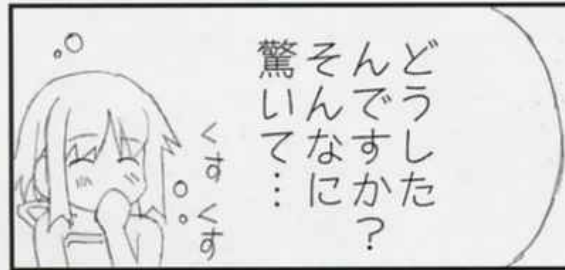 どうした
んですか?
そんなに
驚いて…
くすくす